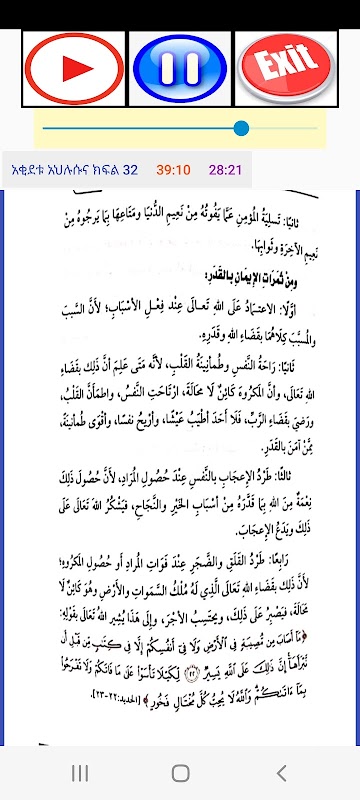 Exit
አቂደቱ አህሉሱና ክፍል 32 39:10 28:21
ثانيًا: تَسلِيَةُ المُؤمِنِ عمَّا يَفُوتُهُ مِنْ نَعِيمِ الدُّنْيَا وَمَتَاعِهَا بِمَا يَرجُوهُ مِنْ
نَعِيمِ الآخِرَةِ وثَوابِهَا.
ومِنْ ثَمَرَاتِ الإِيمَانِ بِالقَدَرِ:
أوَّلًا: الاعتِمَادُ عَلَى اللهِ تَعَالَى عِنْدَ فِعْلِ الأَسْبَابِ؛ لأَنَّ السَّببَ
والمُسبَّبَ كِلَاهُمَا بِقَضَاءِ اللهِ وقَدَرِهِ.
ثَانيًا: رَاحَةُ النَّفْسِ وطُمَأنِينَةُ القَلْبِ، لأنَّهُ مَتَى عَلِمَ أنَّ ذَلِكَ بقَضَاءِ
اللهِ تَعَالَى، وأنَّ المَكرُوهَ كَائِنٌ لَا مَحَالَةَ، ارتَاحَتِ النَّفْسُ، واطمَأنَّ القَلْبُ،
ورَضِيَ بقَضَاءِ الرَّبِّ، فَلَا أَحَدَ أطْيَبُ عَيْشًا، وأرْيَحُ نفسًا، وأقْوَى طُمَأنِينَةً،
مِمَّنْ آمَنَ بالقَدَرِ.
ثالثًا: طَرْدُ الإعْجَابِ بالنَّفْسِ عِنْدَ حُصُولِ المُرَادِ، لأنَّ حُصُولَ ذَلِكَ
نِعْمَةٌ مِنَ اللهِ بِمَا قَدَّرَهُ مِنْ أسْبَابِ الخَيْرِ والنَّجَاحِ، فيَشْكُرُ اللهَ تَعَالَى عَلَى
ذَلِكَ ويَدَعُ الإعجَابَ.
رَابِعًا: طَرْدُ القَلَقِ والضَّجَرِ عِنْدَ فَوَاتِ المُرادِ أو حُصُولِ المَكرُوهِ؛
لأنَّ ذَلِكَ بقَضَاءِ اللهِ تَعَالَى الَّذِي لَهُ مُلْكُ السَّمَوَاتِ والأَرْضِ وهُوَ كَائِنٌ لَا
مَحَالَةَ، فيَصْبِرُ عَلَى ذَلِكَ، ويحتَسِبُ الأجْرَ، وإلَى هَذَا يُشِيرُ اللهُ تَعَالَى بقَولِهِ:
﴿مَا أَصَابَ مِن مُّصِيبَةٍ فِي ٱلْأَرْضِ وَلَا فِىٓ أَنفُسِكُمْ إِلَّا فِى كِتَٰبٍ مِّن قَبْلِ أَن
نَّبْرَأَهَآ إِنَّ ذَٰلِكَ عَلَى ٱللَّهِ يَسِيرٌ ﴿٢٢﴾ لِّكَيْلَا تَأْسَوْا۟ عَلَىٰ مَا فَاتَكُمْ وَلَا تَفْرَحُوا۟
بِمَآ ءَاتَىٰكُمْ وَٱللَّهُ لَا يُحِبُّ كُلَّ مُخْتَالٍ فَخُورٍ﴾ [الحديد:٢٢-٢٣].